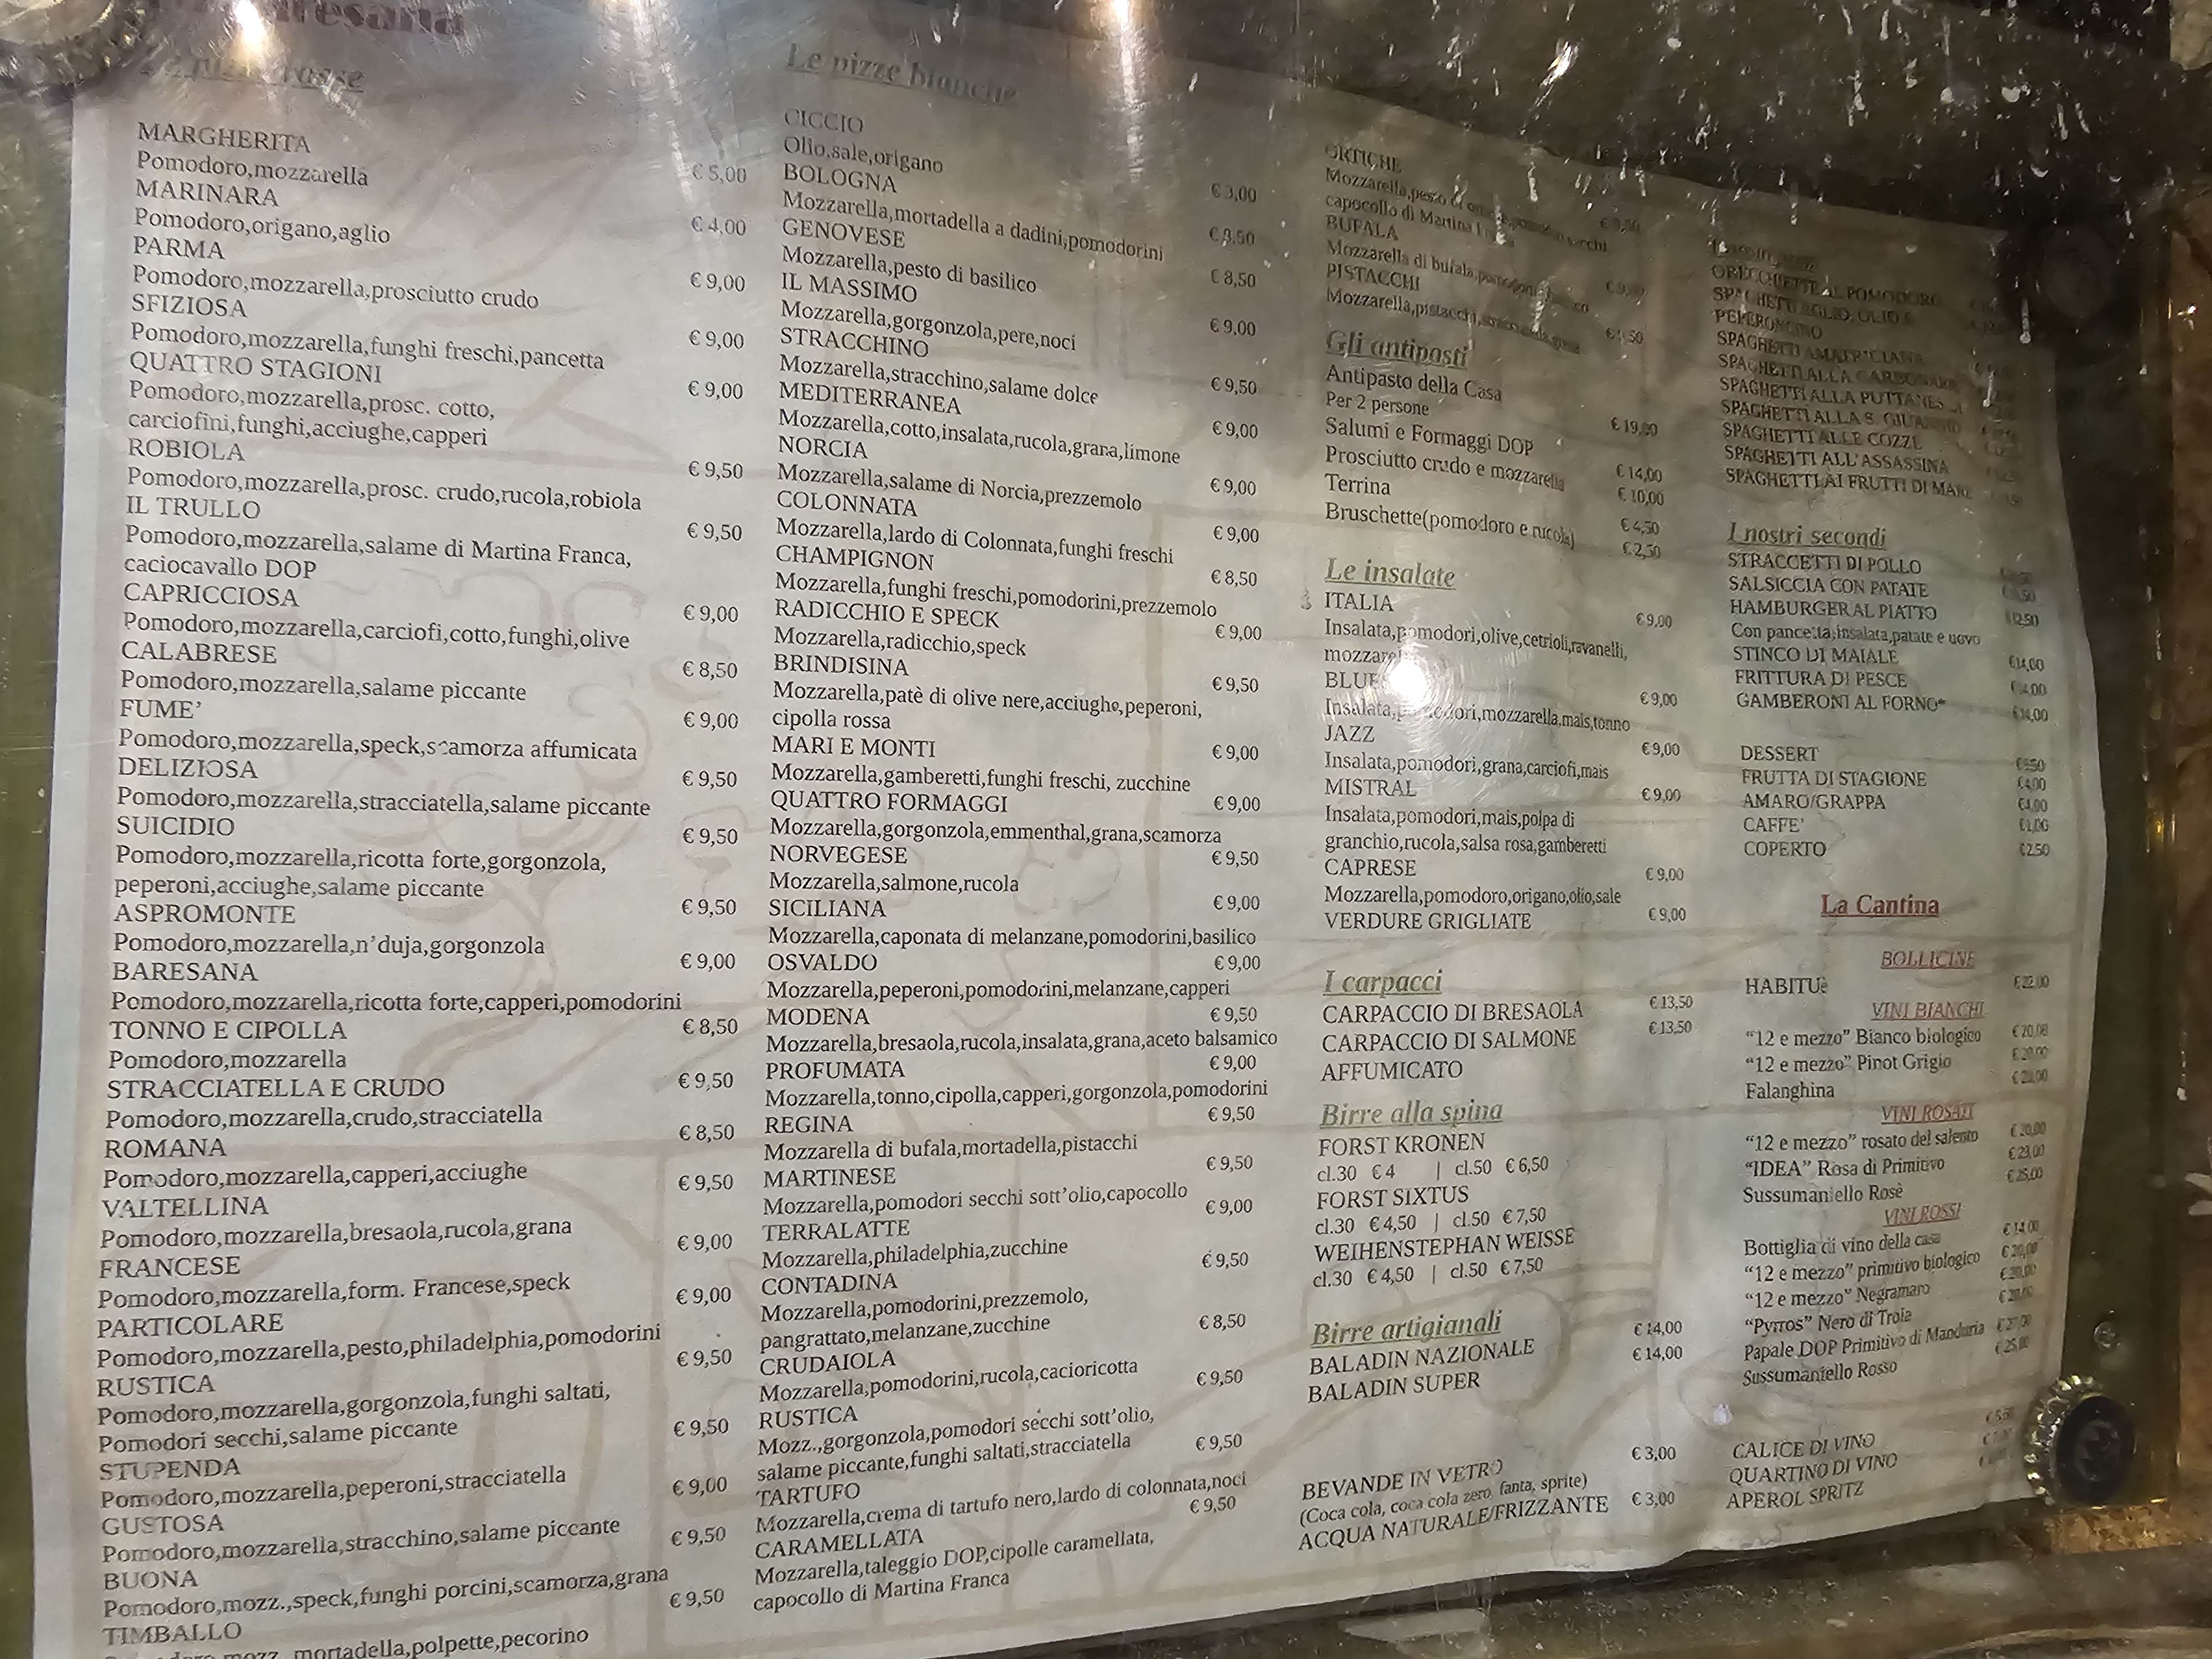 MARGHERITA
Pomodoro,mozzarella € 5,00
MARINARA
Pomodoro,origano,aglio € 4,00
PARMA
Pomodoro,mozzarella,prosciutto crudo € 9,00
SFIZIOSA
Pomodoro,mozzarella,funghi freschi,pancetta € 9,00
QUATTRO STAGIONI
Pomodoro,mozzarella,prosc. cotto, € 9,00
carciofini,funghi,acciughe,capperi
ROBIOLA
Pomodoro,mozzarella,prosc. crudo,rucola,robiola € 9,50
IL TRULLO
Pomodoro,mozzarella,salame di Martina Franca, € 9,50
caciocavallo DOP
CAPRICCIOSA
Pomodoro,mozzarella,carciofi,cotto,funghi,olive € 9,00
CALABRESE
Pomodoro,mozzarella,salame piccante € 8,50
FUME'
Pomodoro,mozzarella,speck,scamorza affumicata € 9,00
DELIZIOSA
Pomodoro,mozzarella,stracciatella,salame piccante € 9,50
SUICIDIO
Pomodoro,mozzarella,ricotta forte,gorgonzola, € 9,50
peperoni,acciughe,salame piccante
ASPROMONTE
Pomodoro,mozzarella,n'duja,gorgonzola € 9,50
BARESANA
Pomodoro,mozzarella,ricotta forte,capperi,pomodorini € 9,00
TONNO E CIPOLLA
Pomodoro,mozzarella € 8,50
STRACCIATELLA E CRUDO
Pomodoro,mozzarella,crudo,stracciatella € 9,50
ROMANA
Pomodoro,mozzarella,capperi,acciughe € 8,50
VALTELLINA
Pomodoro,mozzarella,bresaola,rucola,grana € 9,50
FRANCESE
Pomodoro,mozzarella,form. Francese,speck € 9,00
PARTICOLARE
Pomodoro,mozzarella,pesto,philadelphia,pomodorini € 9,00
RUSTICA
Pomodoro,mozzarella,gorgonzola,funghi saltati, € 9,50
Pomodori secchi,salame piccante
STUPENDA
Pomodoro,mozzarella,peperoni,stracciatella € 9,50
GUSTOSA
Pomodoro,mozzarella,stracchino,salame piccante € 9,00
BUONA
Pomodoro,mozz.,speck,funghi porcini,scamorza,grana € 9,50
TIMBALLO
mortadella,polpette,pecorino € 9,50
Le pizze bianche
CICCIO
Olio,sale,origano
BOLOGNA € 3,00
Mozzarella,mortadella a dadini,pomodorini
GENOVESE
Mozzarella,pesto di basilico € 8,50
IL MASSIMO
Mozzarella,gorgonzola,pere,noci € 9,00
STRACCHINO
Mozzarella,stracchino,salame dolce € 9,50
MEDITERRANEA
Mozzarella,cotto,insalata,rucola,grana,limone € 9,00
NORCIA
Mozzarella,salame di Norcia,prezzemolo € 9,00
COLONNATA
Mozzarella,lardo di Colonnata,funghi freschi € 9,00
CHAMPIGNON
Mozzarella,funghi freschi,pomodorini,prezzemolo € 8,50
RADICCHIO E SPECK
Mozzarella,radicchio,speck € 9,00
BRINDISINA
Mozzarella,patè di olive nere,acciughe,peperoni, € 9,50
cipolla rossa
MARI E MONTI € 9,00
Mozzarella,gamberetti,funghi freschi, zucchine
QUATTRO FORMAGGI € 9,00
Mozzarella,gorgonzola,emmenthal,grana,scamorza
NORVEGESE € 9,50
Mozzarella,salmone,rucola
SICILIANA € 9,00
Mozzarella,caponata di melanzane,pomodorini,basilico
OSVALDO € 9,00
Mozzarella,peperoni,pomodorini,melanzane,capperi
MODENA € 9,50
Mozzarella,bresaola,rucola,insalata,grana,aceto balsamico
PROFUMATA € 9,00
Mozzarella,tonno,cipolla,capperi,gorgonzola,pomodorini
REGINA € 9,50
Mozzarella di bufala,mortadella,pistacchi
MARTINESE € 9,50
Mozzarella,pomodori secchi sott'olio,capocollo
TERRALATTE € 9,00
Mozzarella,philadelphia,zucchine
CONTADINA € 9,50
Mozzarella,pomodorini,prezzemolo,
pangrattato,melanzane,zucchine
CRUDAIOLA € 8,50
Mozzarella,pomodorini,rucola,cacioricotta
RUSTICA € 9,50
Mozz.,gorgonzola,pomodori secchi sott'olio,
salame piccante,funghi saltati,stracciatella
TARTUFO € 9,50
Mozzarella,crema di tartufo nero,lardo di colonnata,noci
CARAMELLATA € 9,50
Mozzarella,taleggio DOP,cipolle caramellata,
capocollo di Martina Franca
ORTICHE
Mozzarella,pesto di
capocollo di Martina
BUFALA
Mozzarella di bufala,pomodorini,basilico
PISTACCHI
Mozzarella,pistacchi,
Gli antipasti
Antipasto della Casa
Per 2 persone € 19,00
Salumi e Formaggi DOP
Prosciutto crudo e mozzarella € 14,00
Terrina € 10,00
Bruschette(pomodoro e rucola) € 4,50
€ 2,50
Le insalate
ITALIA € 9,00
Insalata,pomodori,olive,cetrioli,ravanelli,
BLUES € 9,00
Insalata,pomodori,mozzarella,mais,tonno
JAZZ € 9,00
Insalata,pomodori,grana,carciofi,mais
MISTRAL € 9,00
Insalata,pomodori,mais,polpa di
granchio,rucola,salsa rosa,gamberetti
CAPRESE € 9,00
Mozzarella,pomodoro,origano,olio,sale
VERDURE GRIGLIATE € 9,00
I carpacci
CARPACCIO DI BRESAOLA € 13,50
CARPACCIO DI SALMONE € 13,50
AFFUMICATO
Birre alla spina
FORST KRONEN
cl.30 € 4 | cl.50 € 6,50
FORST SIXTUS
cl.30 € 4,50 | cl.50 € 7,50
WEIHENSTEPHAN WEISSE
cl.30 € 4,50 | cl.50 € 7,50
Birre artigianali
BALADIN NAZIONALE € 14,00
BALADIN SUPER € 14,00
BEVANDE IN VETRO € 3,00
(Coca cola, coca cola zero, fanta, sprite)
ACQUA NATURALE/FRIZZANTE € 3,00
ORECCHIETTE AL POMODORO
SPAGHETTI AGLIO, OLIO E
PEPERONCINO
SPAGHETTI AMATRICIANA
SPAGHETTI ALLA CARBONARA
SPAGHETTI ALLA PUTTANESCA
SPAGHETTI ALLA S. GIUANNID
SPAGHETTI ALLE COZZE
SPAGHETTI ALL'ASSASSINA
SPAGHETTI AI FRUTTI DI MARE
I nostri secondi
STRACCETTI DI POLLO
SALSICCIA CON PATATE
HAMBURGER AL PIATTO € 12,50
Con pancetta,insalata,patate e uovo
STINCO DI MAIALE € 14,00
FRITTURA DI PESCE € 14,00
GAMBERONI AL FORNO* € 14,00
DESSERT
FRUTTA DI STAGIONE € 4,00
AMARO/GRAPPA € 4,00
CAFFE' € 1,00
COPERTO € 2,50
La Cantina
BOLLICINE
HABITUè € 22,00
VINI BIANCHI
"12 e mezzo" Bianco biologico € 20,00
"12 e mezzo" Pinot Grigio € 20,00
Falanghina € 20,00
VINI ROSATI
"12 e mezzo" rosato del salento € 20,00
"IDEA" Rosa di Primitivo € 23,00
Sussumaniello Rosè € 25,00
VINI ROSSI
Bottiglia di vino della casa € 14,00
"12 e mezzo" primitivo biologico € 20,00
"12 e mezzo" Negramaro € 20,00
"Pyrros" Nero di Troia € 20,00
Papale DOP Primitivo di Manduria
Sussumaniello Rosso € 25,00
CALICE DI VINO
QUARTINO DI VINO
APEROL SPRITZ